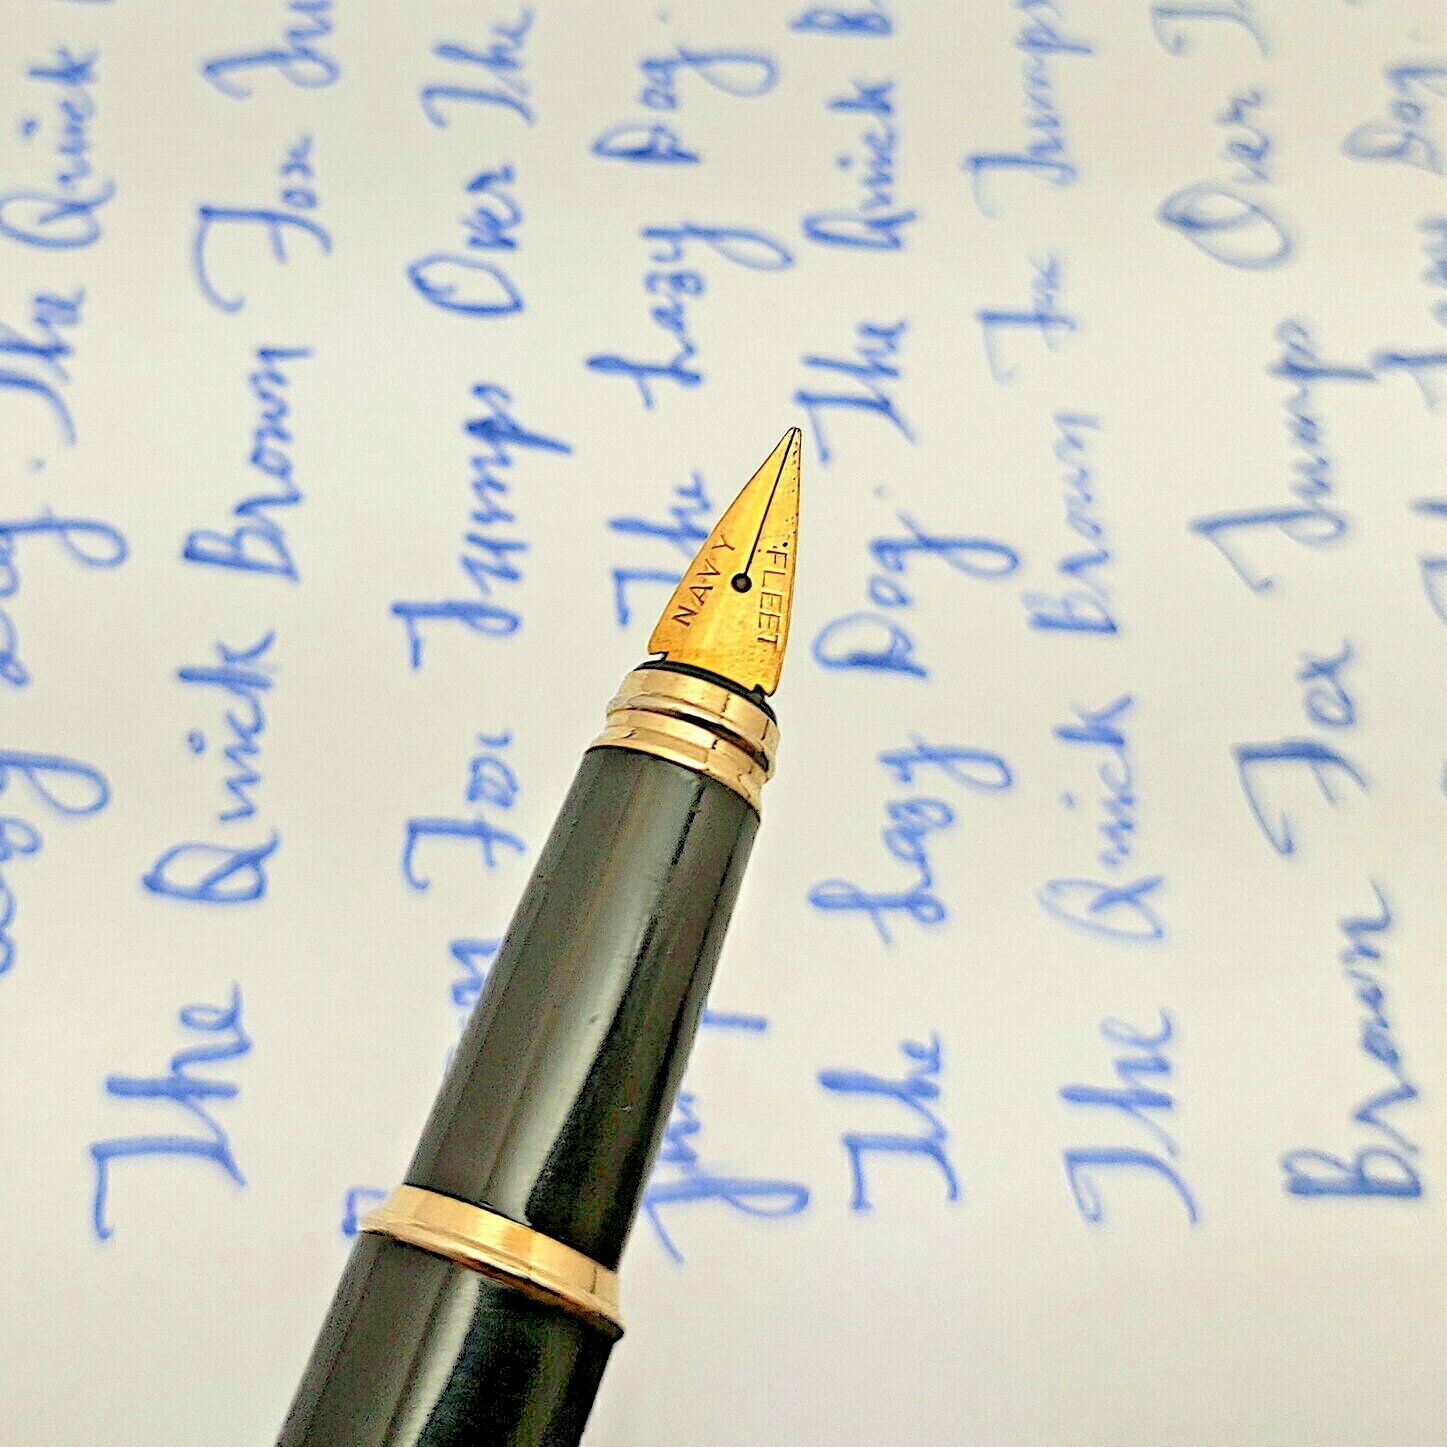 Lazy Dog. The Quick
The Quick Brown Fox
Fox Jumps Over The
The Lazy Dog.
The Lazy Dog. The Quick
The Quick Brown Fox Jumps
Brown Fox Jumps Over
Lazy Dog.
NAVY
FLEET